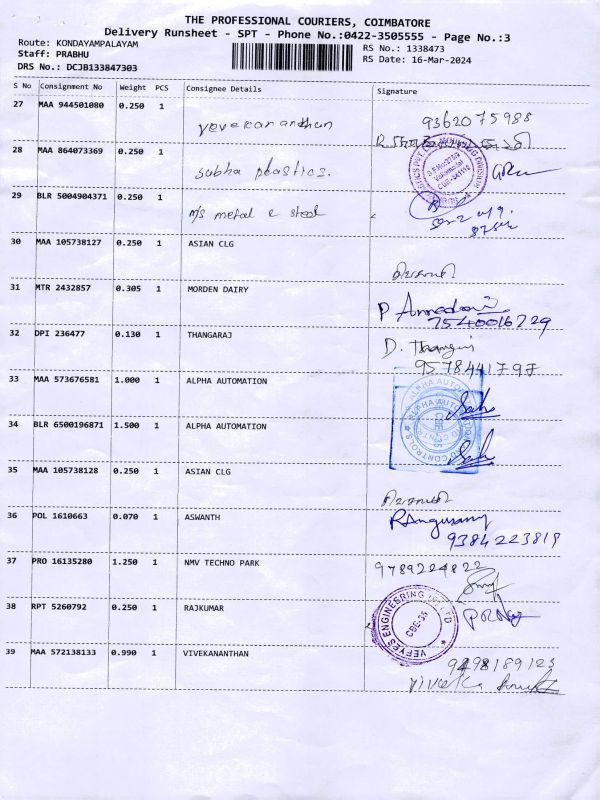 THE PROFESSIONAL COURIERS, COIMBATORE
Delivery Runsheet - SPT - Phone No.:0422-3505555 - Page No.:3
Route: KONDAYAMPALAYAM
RS No.: 1338473
Staff: PRABHU
RS Date: 16-Mar-2024
DRS No.: DCJB133847303
S No Consignment No Weight PCS Consignee Details Signature
27 MAA 944501080 0.250 1
9362075988
28 MAA 864073369 0.250 1 subha plastics.
29 BLR 5004904371 0.250 1 M/s metal & steel
30 MAA 105738127 0.250 1 ASIAN CLG
31 MTR 2432857 0.305 1 MORDEN DAIRY
7540016729
32 DPI 236477 0.130 1 THANGARAJ
9578441797
33 MAA 573676581 1.000 1 ALPHA AUTOMATION
34 BLR 6500196871 1.500 1 ALPHA AUTOMATION
35 MAA 105738128 0.250 1 ASIAN CLG
36 POL 1610663 0.070 1 ASWANTH
9384223819
37 PRO 16135280 1.250 1 NMV TECHNO PARK 9789224822
38 RPT 5260792 0.250 1 RAJKUMAR
CBE-35
39 MAA 572138133 0.990 1 VIVEKANANTHAN